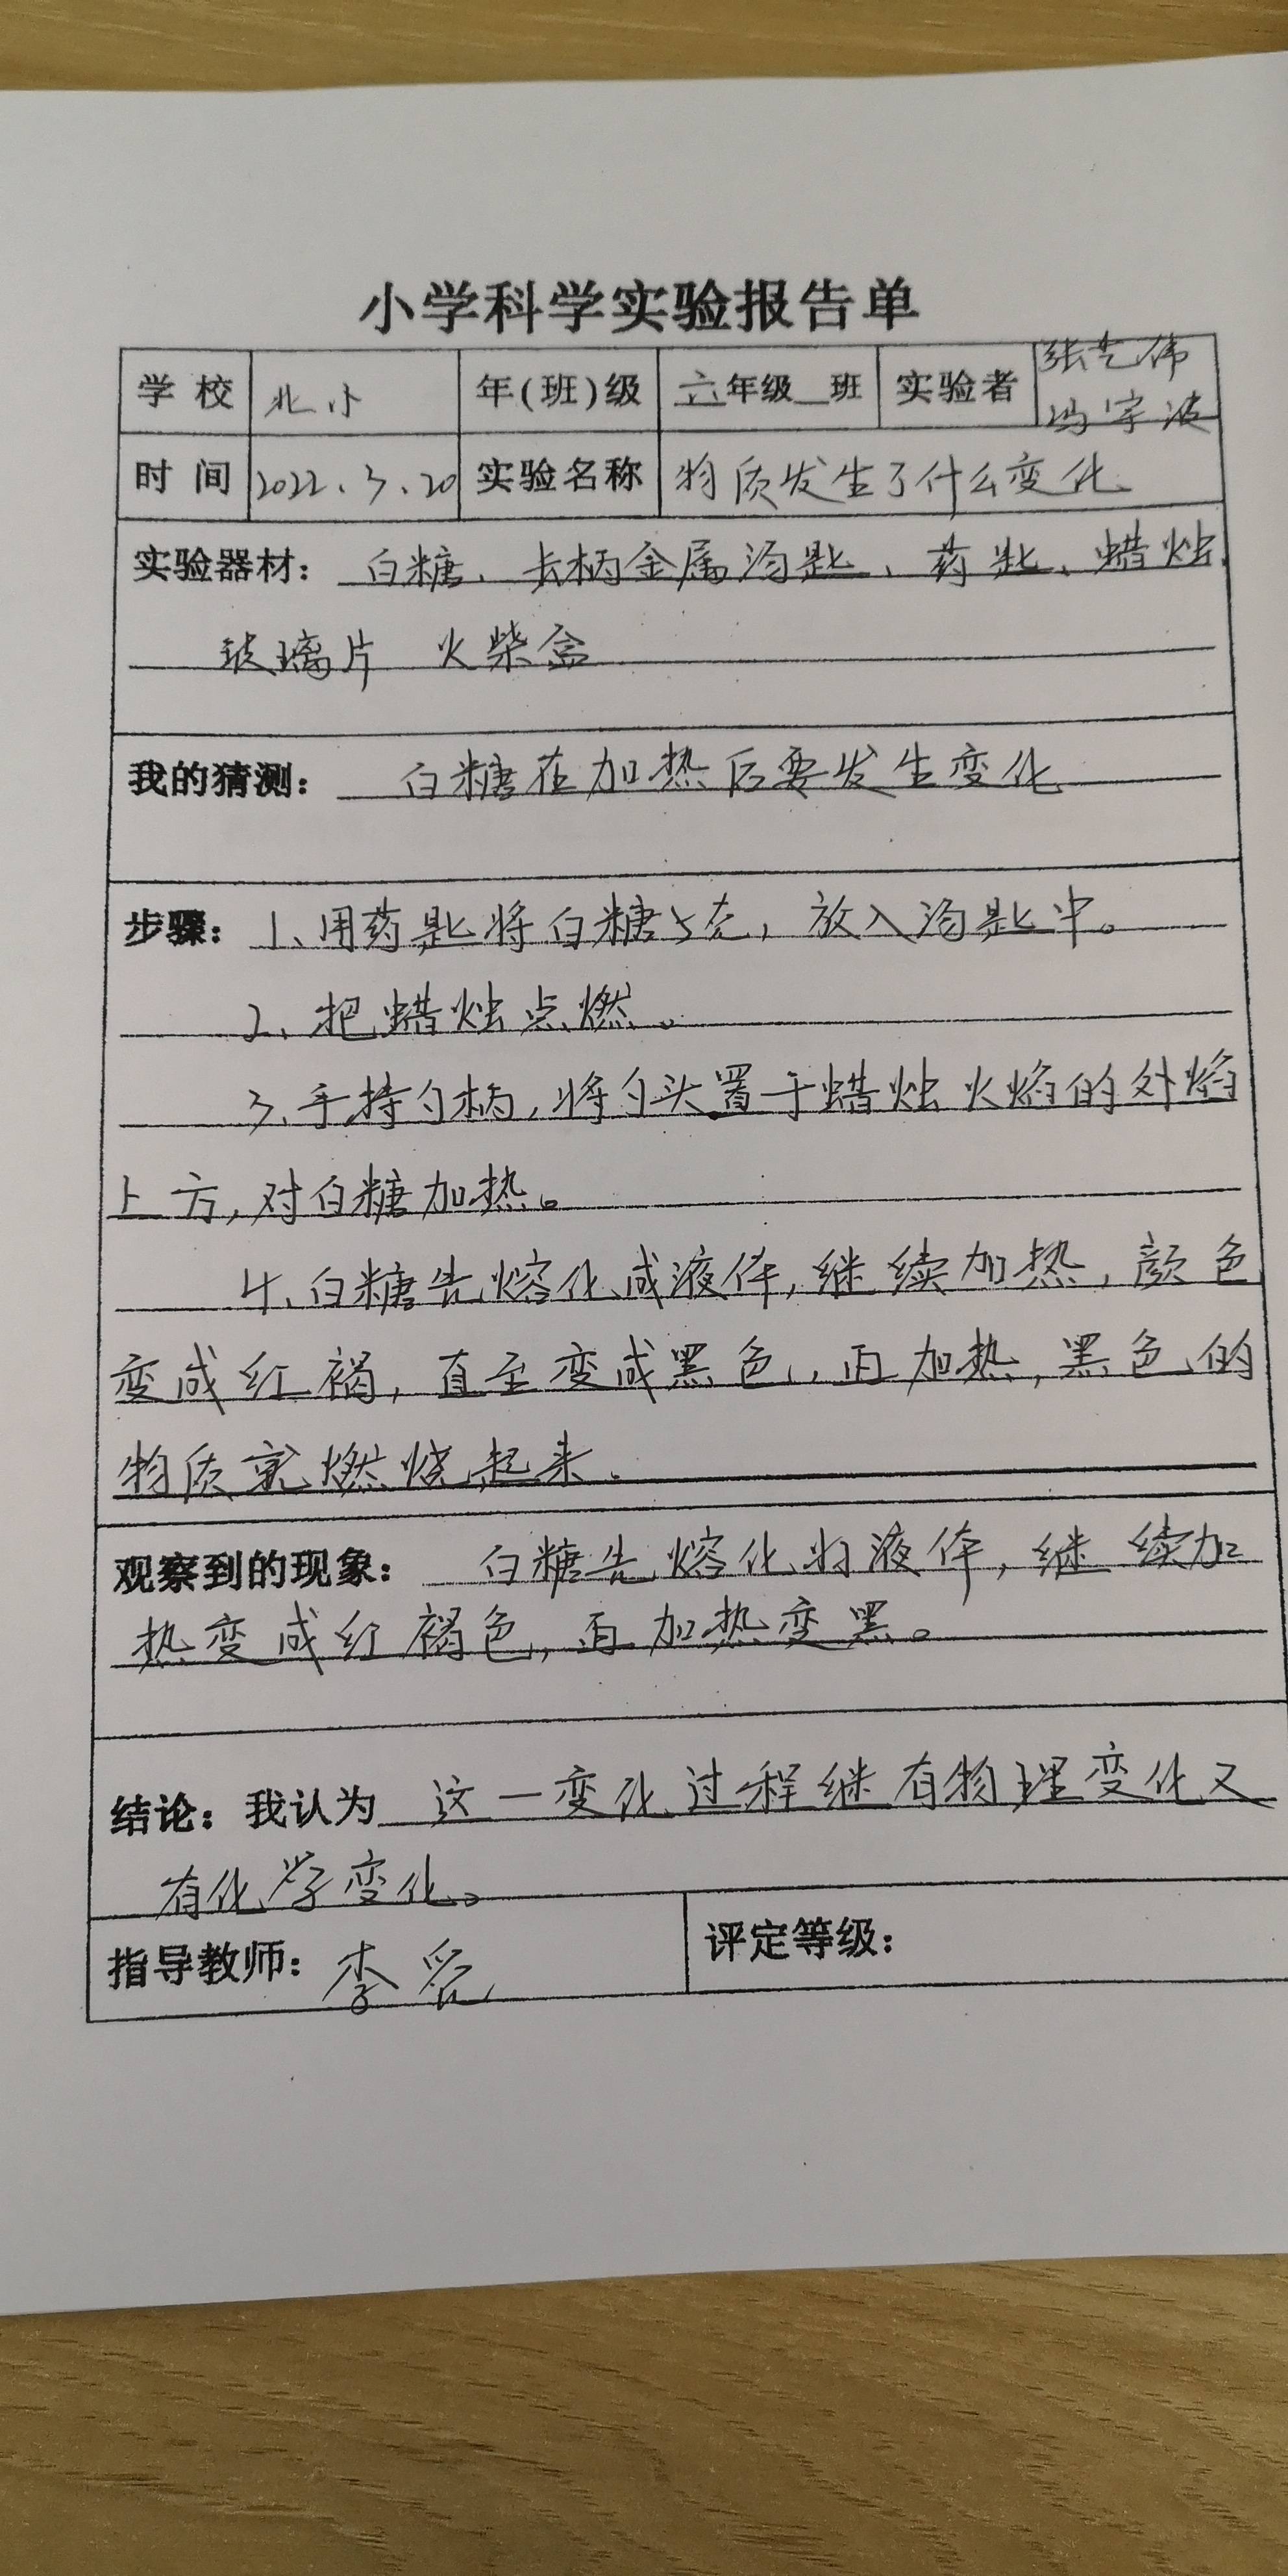 小学科学实验报告单
学校 北小 年(班)级 六年级 班 实验者 张艺伟
冯宇波
时间 2022.3.20 实验名称 物质发生了什么变化
实验器材: 白糖、长柄金属汤匙、药匙、蜡烛、
玻璃片 火柴盒
我的猜测: 白糖在加热后要发生变化
步骤: 1、用药匙将白糖5克,放入汤匙中。
2、把蜡烛点燃。
3、手持勺柄,将勺头置于蜡烛火焰的外焰
上方,对白糖加热。
4、白糖先熔化成液体,继续加热,颜色
变成红褐,直至变成黑色,再加热,黑色的
物质就燃烧起来.
观察到的现象: 白糖先熔化为液体,继续加
热变成红褐色,再加热变黑。
结论: 我认为 这一变化过程继有物理变化又
有化学变化。
指导教师: 李 评定等级: